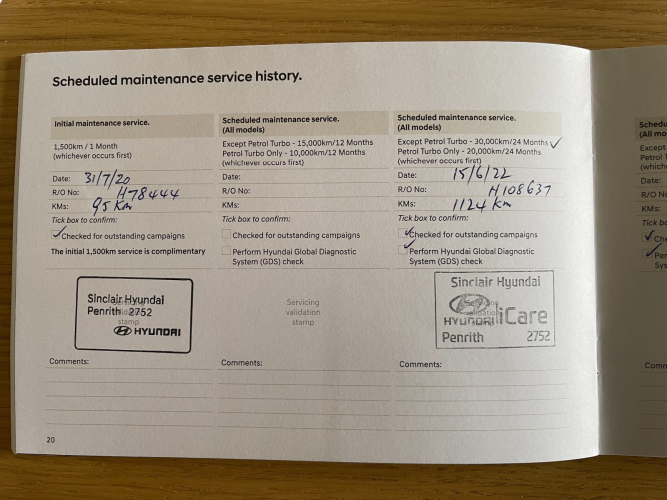 Scheduled maintenance service history.
Initial maintenance service.
1,500km / 1 Month
(whichever occurs first)
Date: 31/7/20
R/O No: H78444
KMs: 95 Km
Tick box to confirm:
Checked for outstanding campaigns
The initial 1,500km service is complimentary
Sinclair Hyundai
Servicing
Penrith 2752
validation
stamp
HYUNDAI
Comments:
Scheduled maintenance service.
(All models)
Except Petrol Turbo - 15,000km/12 Months
Petrol Turbo Only - 10,000km/12 Months
(whichever occurs first)
Date:
R/O No:
KMs:
Tick box to confirm:
Checked for outstanding campaigns
Perform Hyundai Global Diagnostic
System (GDS) check
Servicing
validation
stamp
Comments:
Scheduled maintenance service.
(All models)
Except Petrol Turbo - 30,000km/24 Months
Petrol Turbo Only - 20,000km/24 Months
(whichever occurs first)
Date: 15/6/22
R/O No: H108637
KMs: 1124 km
Tick box to confirm:
Checked for outstanding campaigns
Perform Hyundai Global Diagnostic
System (GDS) check
Sinclair Hyundai
Servicing
validation
HYUNDAI iCare
Penrith 2752
Comments:
20
Schedu
(All mo
Except
Petrol T
(which
Date:
R/O No
KMs:
Tick bo
Che
Per
Sys
Comm